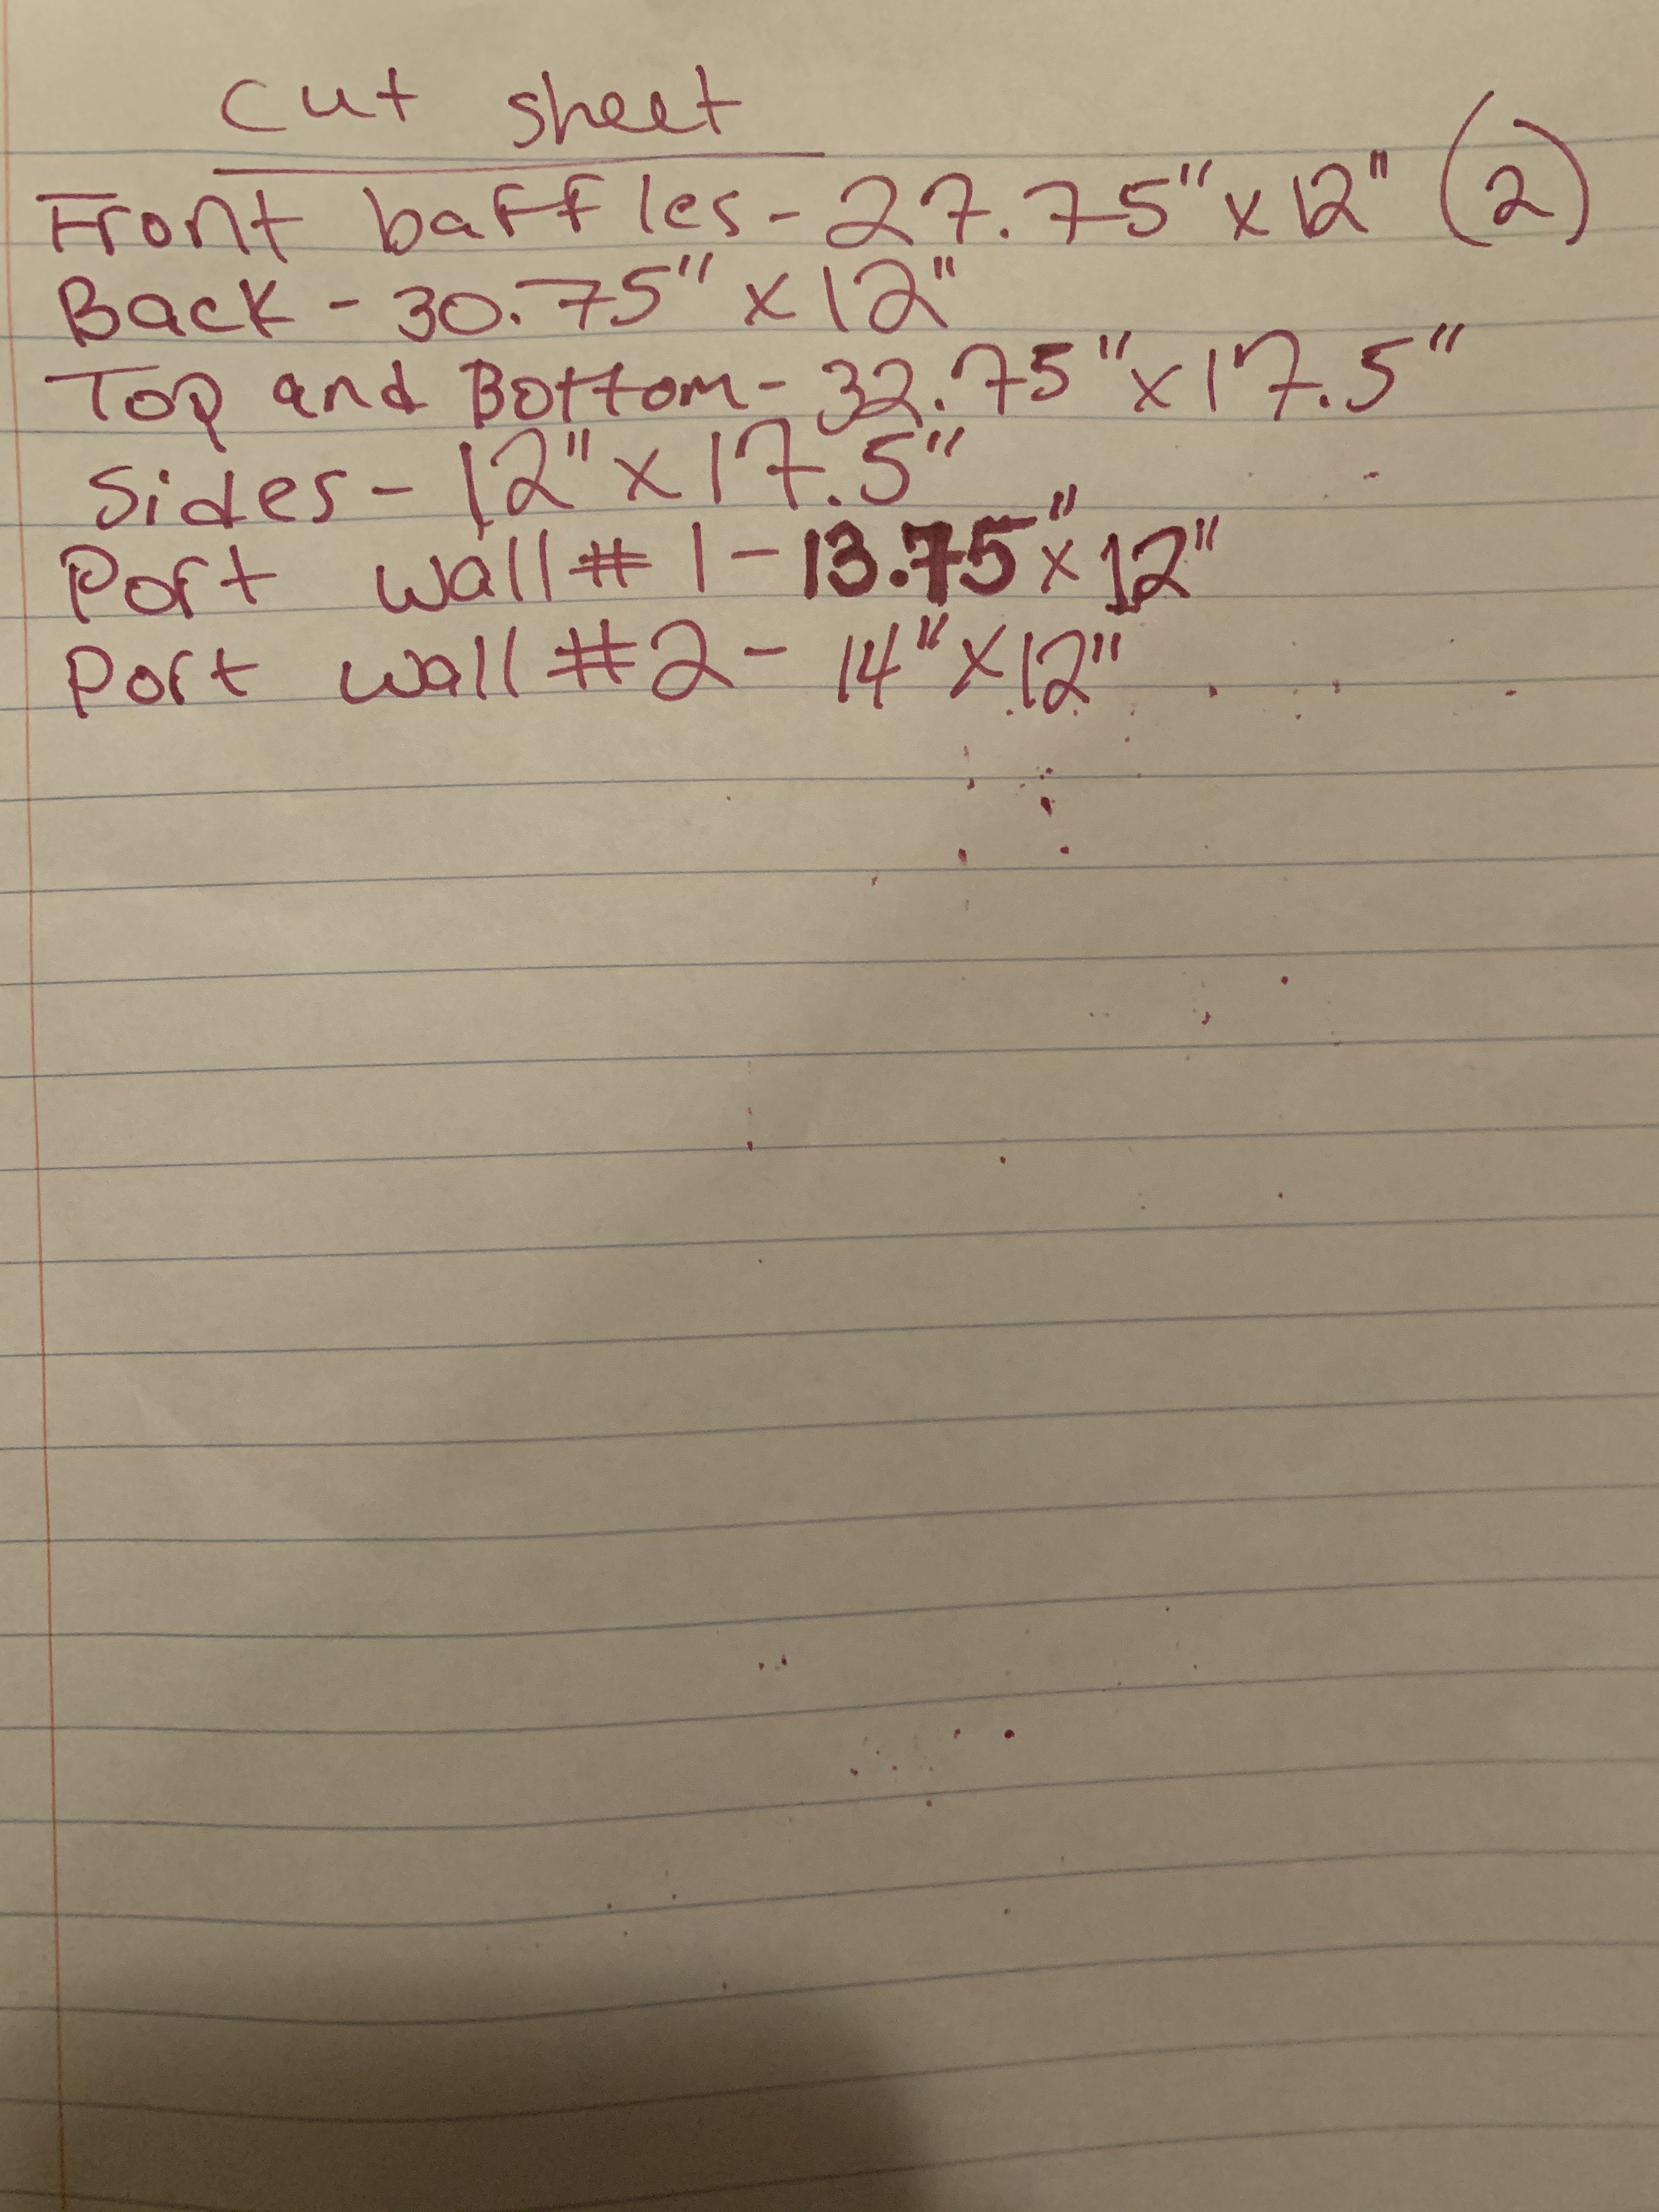 Cut sheet
Front baffles - 27.75" x 12" (2)
Back - 30.75" x 12"
Top and Bottom - 32.75" x 17.5"
Sides - 12" x 17.5"
Port wall # 1 - 13.75" x 12"
Port wall #2 - 14" x 12"